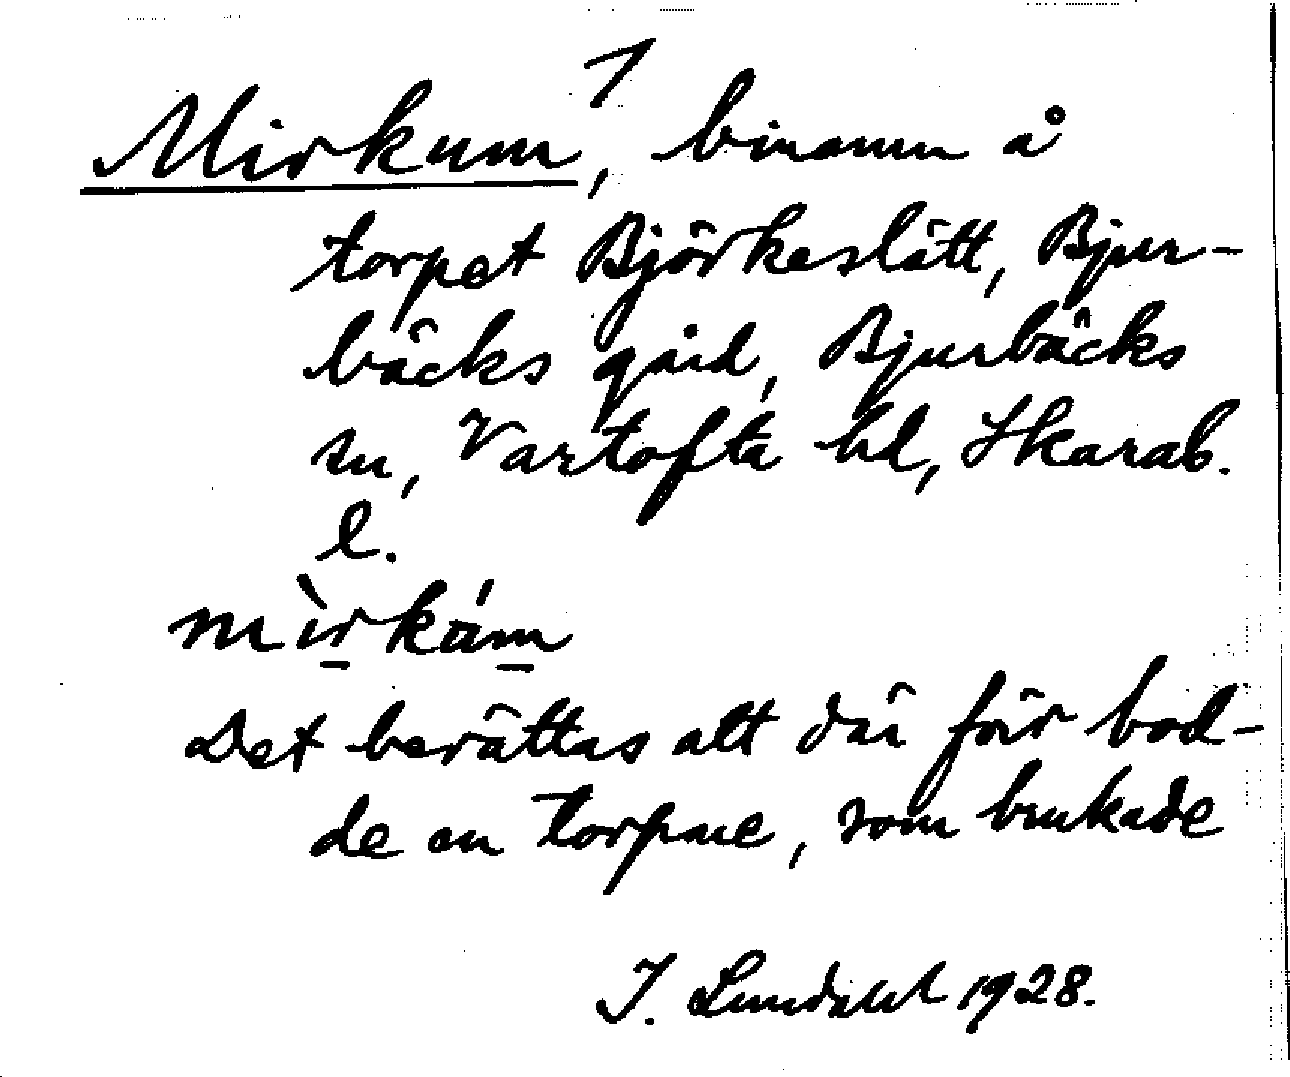 1
Mirkum, binamn å
torpet Björkeslätt, Bjur-
bäcks gård, Bjurbäcks
sn, Vartofta hd, Skarab.
l.
mìrkám
Det berättas att där förr bod-
de en torpare, som brukade
I. Lundahl 1928.